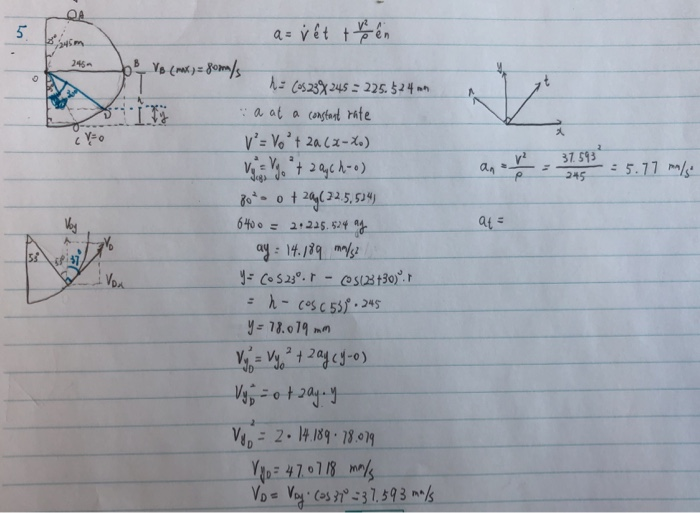 5
A
245m
245m
O
B
V_B (max) = 80 m/s
h
y
D
C V=0
a = v̇ êt + v²/ρ ên
h = cos23° × 245 = 225.524 mm
∵ a at a constant rate
V² = V₀² + 2a(x-x₀)
V_y(B)² = V_y₀² + 2ay(h-0)
80² = 0 + 2ay(225.524)
6400 = 2·225.524 ay
ay = 14.189 mm/s²
y = cos23°·r - cos(23+30)°·r
= h - cos(53)°·245
y = 78.079 mm
V_yD² = V_y₀² + 2ay(y-0)
V_yD² = 0 + 2ay·y
V_yD² = 2·14.189·78.079
V_yD = 47.0718 mm/s
V_D = V_Dy·cos37° = 37.593 mm/s
y
t
n
x
an = V²/ρ = 37.593²/245 = 5.77 mm/s²
at =
V_Dy
V_D
53
53°
37°
V_Dx